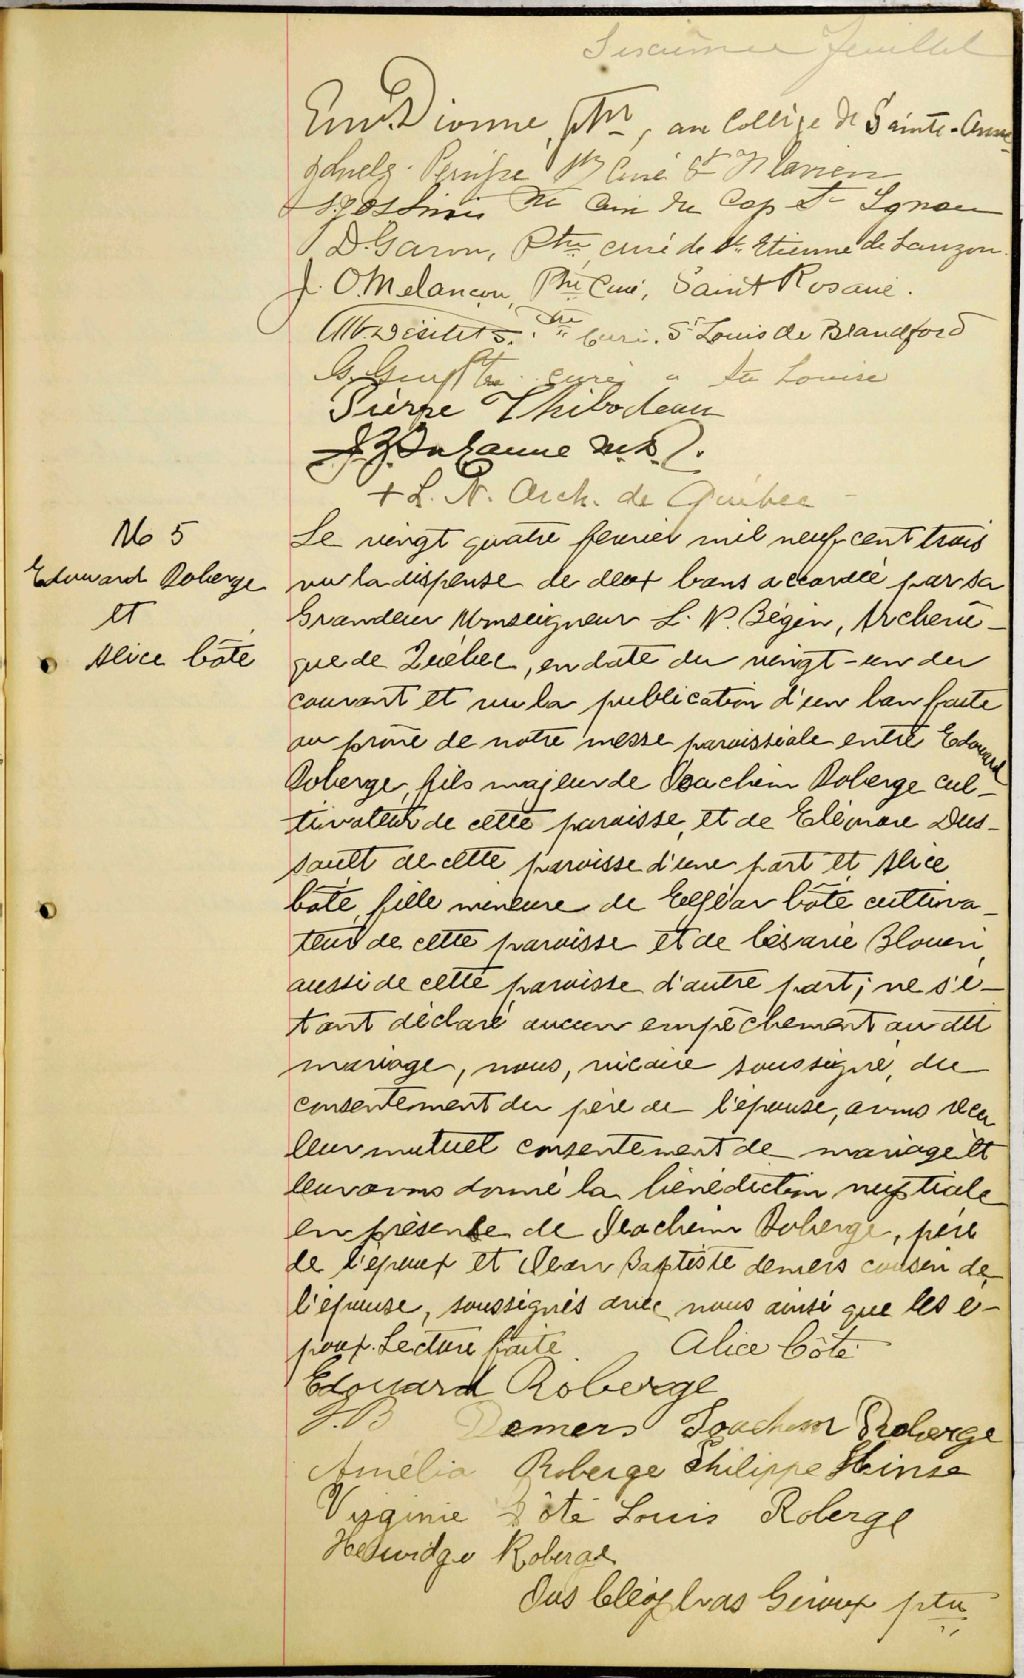 feuillet
Em. Dionne, ptre, au Collège de Sainte-Anne
Ptre Curé St Flavien
Ptre Curé du Cap St Ignace
D. Garon, Ptre, curé de St. Etienne de Lauzon.
J. O. Melançon, Ptre Curé, Saint Rosaire.
Ptre Curé. St Louis de Blandford
G. Ptre curé Ste Louise
Pierre Thibodeau
M.D.
+ L. N. Arch. de Québec
No 5
Edouard Roberge
et
Alice Côté
Le vingt quatre fevrier mil neuf cent trois
vu la dispense de deux bans accordée par sa
Grandeur Monseigneur L. N. Bégin, Archevê-
que de Québec, en date du vingt-un du
courant et vu la publication d'un ban faite
au prône de notre messe paroissiale entre Edouard
Roberge, fils majeur de Joachim Roberge cul-
tivateur de cette paroisse, et de Eléonore Dus-
sault de cette paroisse d'une part et Alice
Côté, fille mineure de Elzéar Côté cultiva-
teur de cette paroisse et de Césarie Blouin,
aussi de cette paroisse d'autre part; ne s'é-
tant déclaré aucun empêchement au dit
mariage, nous, vicaire soussigné, du
consentement du père de l'épouse, avons reçu
leur mutuel consentement de mariage et
leur avons donné la bénédiction nuptiale
en présence de Joachim Roberge, père
de l'époux et Jean Baptiste demers cousin de
l'épouse, soussignés avec nous ainsi que les é-
poux. Lecture faite. Alice Côté
Edouard Roberge
J. B Demers Joachim Roberge
Amélia Roberge Philippe Hinse
Virginie Côté Louis Roberge
Hedwidge Roberge
Jos Cléophas Giroux ptre